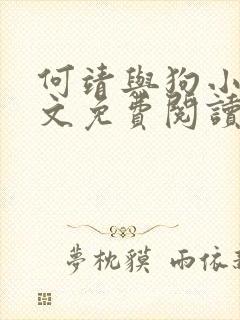 何靖與狗小
文免費閱讀
夢枕貘 雨依